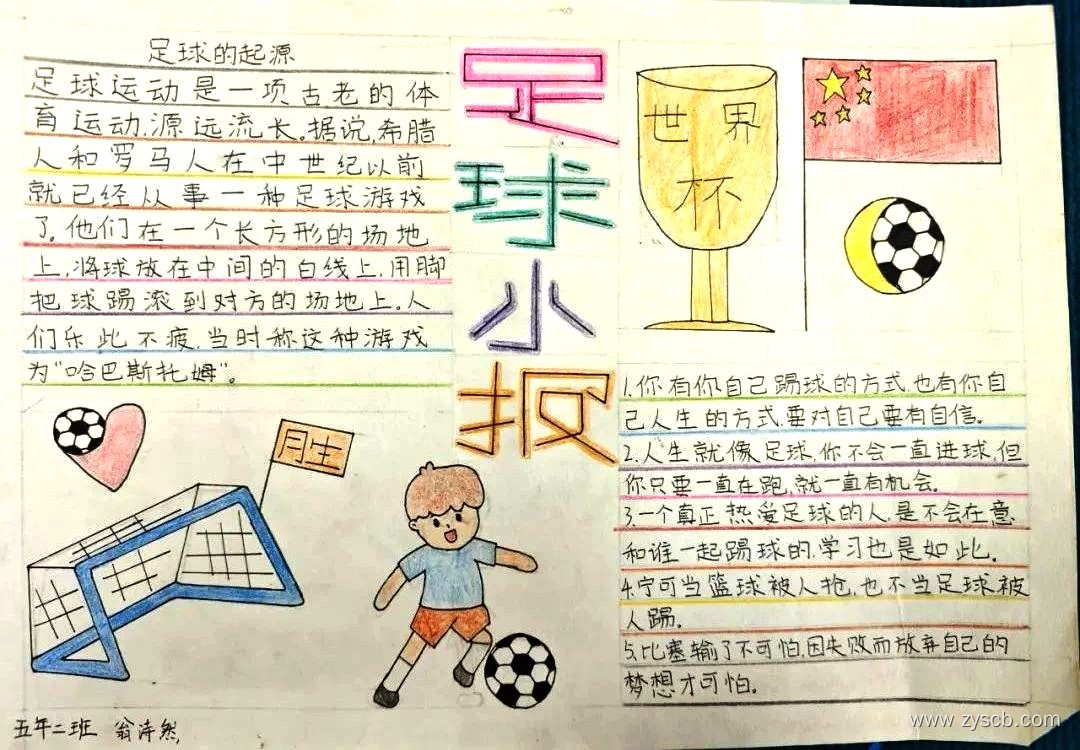 足球的起源
足球运动是一项古老的体
育运动,源远流长。据说,希腊
人和罗马人在中世纪以前
就已经从事一种足球游戏
了。他们在一个长方形的场地
上,将球放在中间的白线上,用脚
把球踢滚到对方的场地上。人
们乐此不疲,当时称这种游戏
为"哈巴斯托姆"。
足
球
小
报
世界
杯
月生
1.你有你自己踢球的方式,也有你自
己人生的方式,要对自己要有自信。
2.人生就像足球,你不会一直进球,但
你只要一直在跑,就一直有机会。
3.一个真正热爱足球的人,是不会在意
和谁一起踢球的,学习也是如此。
4.宁可当篮球被人抢,也不当足球被
人踢。
5.比赛输了不可怕,因失败而放弃自己的
梦想才可怕。
五年二班 翁诗然
www.zyscb.com